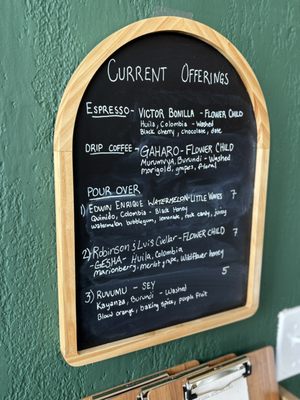 CURRENT OFFERINGS
ESPRESSO - VICTOR BONILLA - FLOWER CHILD
Huila, Colombia - Washed
Black cherry, chocolate, date
DRIP COFFEE - GAHARO - FLOWER CHILD
Murumvya, Burundi - Washed
marigold, grapes, floral
POUR OVER
1) EDWIN ENRIQUE WATERMELON - LITTLE WAVES 7
Quindio, Colombia - Black Honey
watermelon bubblegum, lemonade, fruit candy, jammy
2) Robinson & Luis Cuellar - FLOWER CHILD 7
- GESHA - Huila, Colombia
marionberry, merlot grape, wildflower honey
3) RUVUMU - SEY 5
Kayanza, Burundi - Washed
Blood orange, baking spice, purple fruit